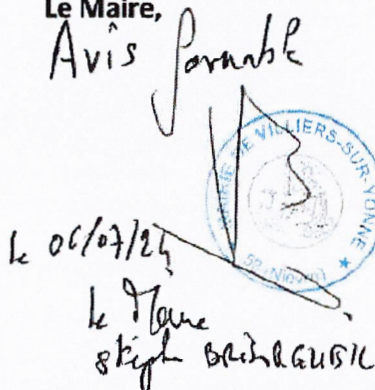 Le Maire,
Avis favorable
MAIRIE DE VILLIERS-SUR-YONNE ★
58 (Nièvre)
le 06/07/24
le Maire